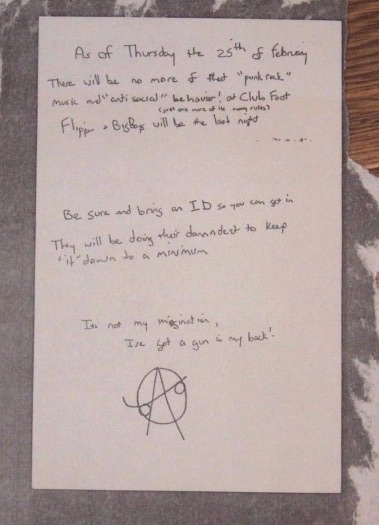 As of Thursday the 25th of February
There will be no more of that "punk rock"
music and "anti social" behavior! at Club Foot
(just one more of its many rules)
Flipper & Big Boys will be the last night
Be sure and bring an ID so you can get in
They will be doing their damndest to keep
"it" down to a minimum
Its not my imagination,
I've got a gun in my back!